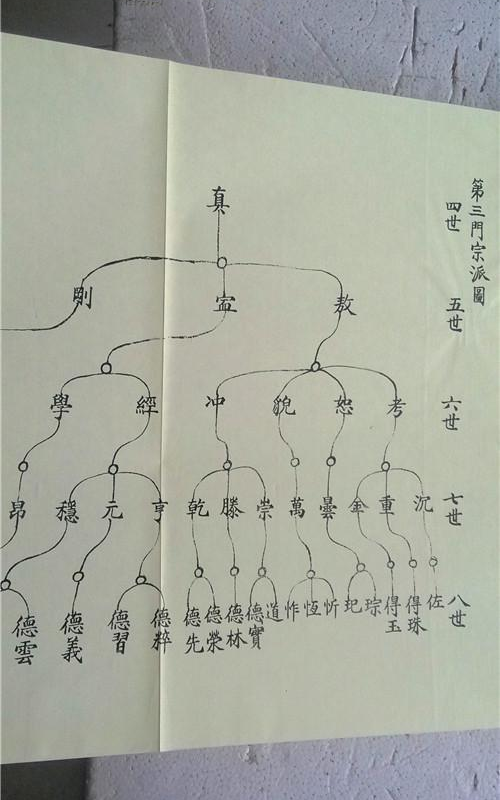 第三門宗派圖
四世
真
五世
敖
寍
剛
六世
考
恕
貌
冲
經
學
七世
沉
重
金
曇
萬
崇
滕
乾
亨
元
穩
昂
八世
佐
得珠
得玉
琮
玘
忻
恆
怍
道
德寶
德林
德榮
德先
德粹
德習
德義
德雲